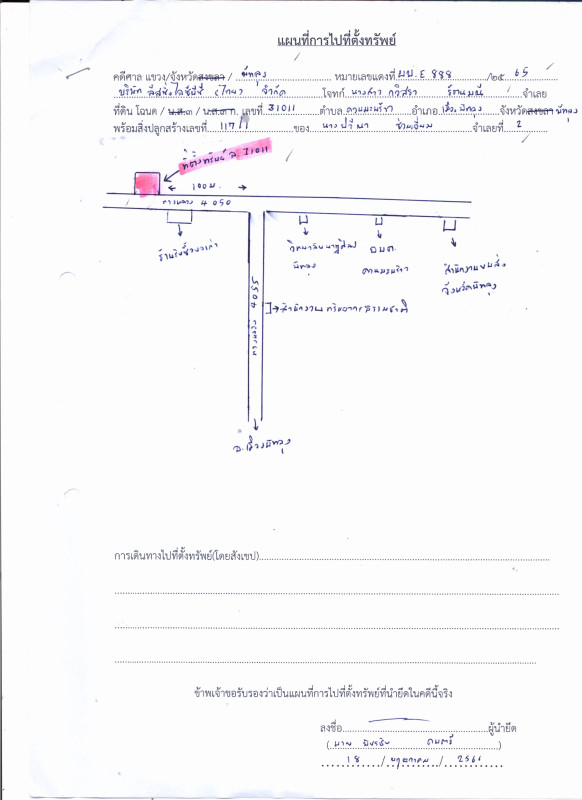 แผนที่การไปที่ตั้งทรัพย์
คดีศาล แขวง/จังหวัดสงขลา / พัทลุง หมายเลขแดงที่ ผบ.E 888 /๒๕ 65
บริษัท ลีสซิ่งไอซีบีซี (ไทย) จำกัด โจทก์ นางสาว จำเลย
ที่ดิน โฉนด / น.ส.๓ / น.ส.๓ ก. เลขที่ 31011 ตำบล ควนมะพร้าว อำเภอ เมืองพัทลุง จังหวัดสงขลา พัทลุง
พร้อมสิ่งปลูกสร้างเลขที่ 117/ ของ นาง จำเลยที่ 2
ที่ตั้งทรัพย์ ฉ. 31011
100 ม.
ทางหลวง 4050
ร้านรับซื้อของเก่า
วิทยาลัยนาฏศิลป
พัทลุง
อบต.
ควนมะพร้าว
สำนักงานขนส่ง
จังหวัดพัทลุง
ทางหลวง
สำนักงานทรัพยากรธรรมชาติ
อ.เมืองพัทลุง
การเดินทางไปที่ตั้งทรัพย์(โดยสังเขป)
ข้าพเจ้าขอรับรองว่าเป็นแผนที่การไปที่ตั้งทรัพย์ที่นำยึดในคดีนี้จริง
ลงชื่อ ผู้นำยึด
( นาย ดนตรี )
18 / พฤษภาคม / 2566